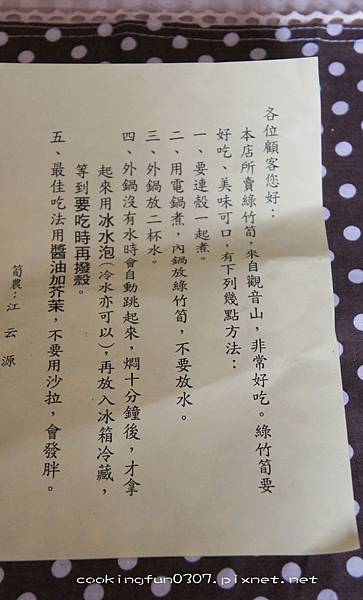 各位顧客您好：
本店所賣綠竹筍，來自觀音山，非常好吃。綠竹筍要
好吃、美味可口，有下列幾點方法：
一、要連殼一起煮。
二、用電鍋煮，內鍋放綠竹筍，不要放水。
三、外鍋放二杯水。
四、外鍋沒有水時會自動跳起來，燜十分鐘後，才拿
起來用冰水泡（冷水亦可以），再放入冰箱冷藏，
等到要吃時再撥殼。
五、最佳吃法用醬油加芥茉，不要用沙拉，會發胖。
筍農：江云源
cookingfun0307.pixnet.net